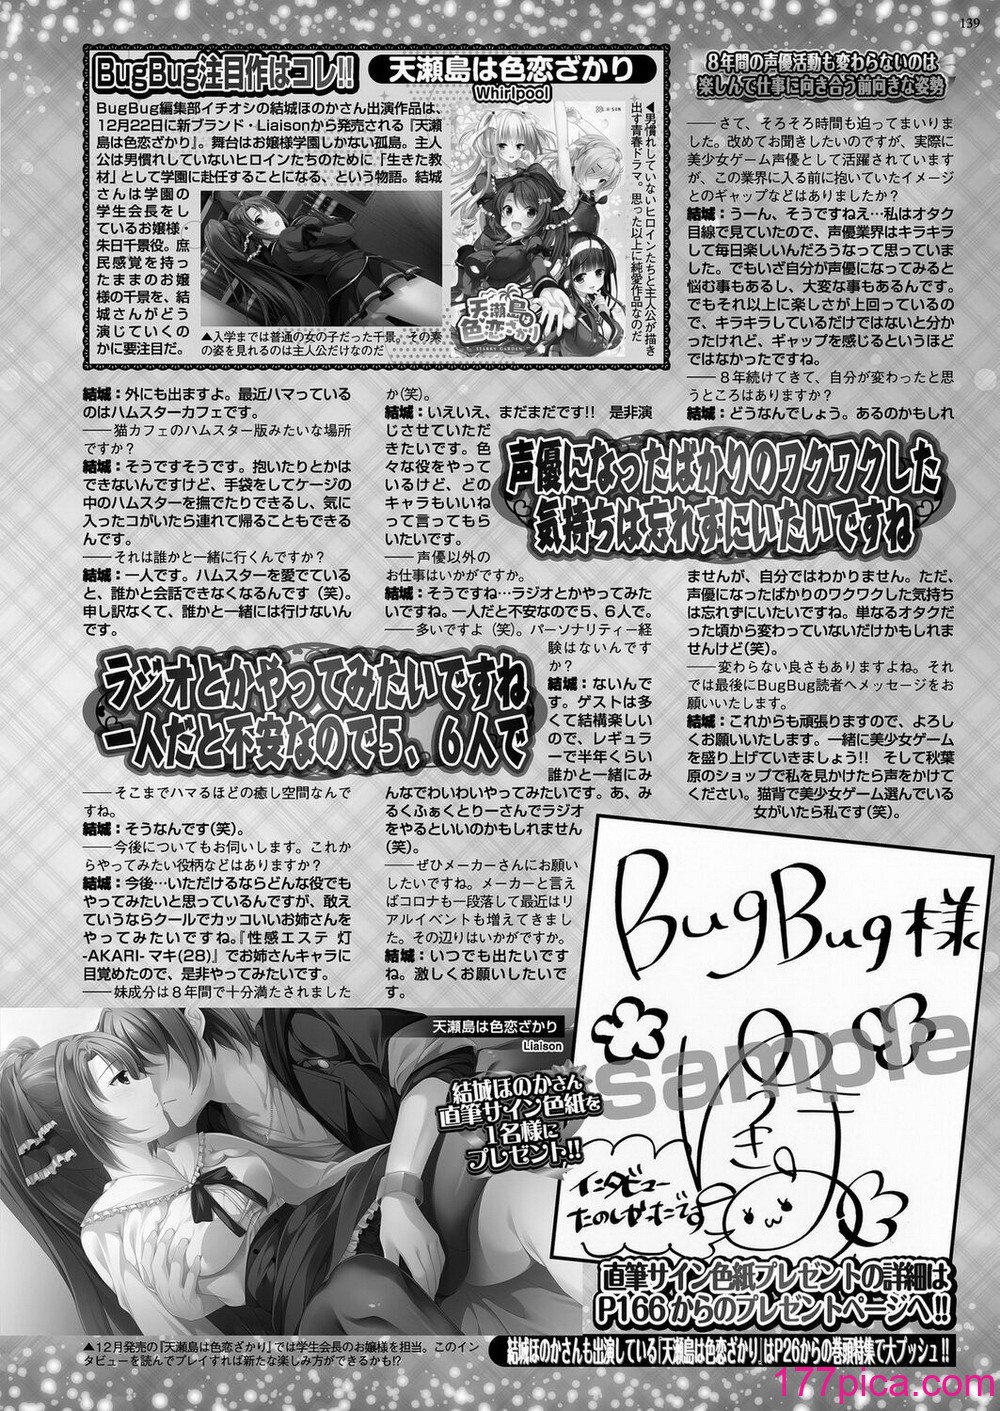 139
BugBug注目作はコレ!!
天瀬島は色恋ざかり
Whirlpool
BugBug編集部イチオシの結城ほのかさん出演作品は、
12月22日に新ブランド・Liaisonから発売される『天瀬
島は色恋ざかり』。舞台はお嬢様学園しかない孤島。主人
公は男慣れしていないヒロインたちのために「生きた教
材」として学園に赴任することになる、という物語。結城
さんは学園の
学生会長をし
ているお嬢様・
朱日千景役。庶
民感覚を持っ
たままのお嬢
様の千景を、結
城さんがどう
演じていくの
かに要注目だ。
▲入学までは普通の女の子だった千景。その素
の姿を見れるのは主人公だけなのだ
天瀬島は
色恋ざかり
STARRY GARDEN
◀男慣れしていないヒロインたちと主人公が描き
出す青春ドラマ。思った以上に純愛作品なのだ
結城:外にも出ますよ。最近ハマっている
のはハムスターカフェです。
――猫カフェのハムスター版みたいな場所
ですか?
結城:そうですそうです。抱いたりとかは
できないんですけど、手袋をしてケージの
中のハムスターを撫でたりできるし、気に
入ったコがいたら連れて帰ることもできる
んです。
――それは誰かと一緒に行くんですか?
結城:一人です。ハムスターを愛でている
と、誰かと会話できなくなるんです(笑)。
申し訳なくて、誰かと一緒には行けないん
です。
ラジオとかやってみたいですね
一人だと不安なので5、6人で
――そこまでハマるほどの癒し空間なんで
すね。
結城:そうなんです(笑)。
――今後についてもお伺いします。これか
らやってみたい役柄などはありますか?
結城:今後…いただけるならどんな役でも
やってみたいと思っているんですが、敢え
ていうならクールでカッコいいお姉さんを
やってみたいですね。『性感エステ 灯
-AKARI- マキ(28)』でお姉さんキャラに
目覚めたので、是非やってみたいです。
――妹成分は8年間で十分満たされました
か(笑)。
結城:いえいえ、まだまだです!! 是非演
じさせていただ
きたいです。色
々な役をやって
いるけど、どの
キャラもいいね
って言ってもら
いたいです。
――声優以外の
お仕事はいかがですか。
結城:そうですね…ラジオとかやってみた
いですね。一人だと不安なので5、6人で。
――多いですよ(笑)。パーソナリティー経
験はないんです
か?
結城:ないんで
す。ゲストは多
くて結構楽しい
ので、レギュラ
ーで半年くらい
誰かと一緒にみ
んなでわいわいやってみたいです。あ、み
るくふぁくとりーさんでラジオ
をやるといいのかもしれません
(笑)。
――ぜひメーカーさんにお願い
したいですね。メーカーと言え
ばコロナも一段落して最近はリ
アルイベントも増えてきまし
た。その辺りはいかがですか。
結城:いつでも出たいです
ね。激しくお願いしたいで
す。
8年間の声優活動も変わらないのは
楽しんで仕事に向き合う前向きな姿勢
――さて、そろそろ時間も迫ってまいりま
した。改めてお聞きしたいのですが、実際に
美少女ゲーム声優として活躍されています
が、この業界に入る前に抱いていたイメージ
とのギャップなどはありましたか?
結城:うーん、そうですねえ…私はオタク
目線で見ていたので、声優業界はキラキラ
して毎日楽しいんだろうなって思っていま
した。でもいざ自分が声優になってみると
悩む事もあるし、大変な事もあるんです。
でもそれ以上に楽しさが上回っているの
で、キラキラしているだけではないと分か
ったけれど、ギャップを感じるというほど
ではなかったですね。
――8年続けてきて、自分が変わったと思
うところはありますか?
結城:どうなんでしょう。あるのかもしれ
声優になったばかりのワクワクした
気持ちは忘れずにいたいですね
ませんが、自分ではわかりません。ただ、
声優になったばかりのワクワクした気持ち
は忘れずにいたいですね。単なるオタクだ
った頃から変わっていないだけかもしれま
せんけど(笑)。
――変わらない良さもありますよね。それ
では最後にBugBug読者へメッセージをお
願いいたします。
結城:これからも頑張りますので、よろし
くお願いいたします。一緒に美少女ゲーム
を盛り上げていきましょう!! そして秋葉
原のショップで私を見かけたら声をかけて
ください。猫背で美少女ゲーム選んでいる
女がいたら私です(笑)。
BugBug様
sample
インタビュー
たのしかったです
天瀬島は色恋ざかり
Liaison
結城ほのかさん
直筆サイン色紙を
1名様に
プレゼント!!
直筆サイン色紙プレゼントの詳細は
P166からのプレゼントページへ!!
▲12月発売の『天瀬島は色恋ざかり』では学生会長のお嬢様を担当。このイン
タビューを読んでプレイすれば新たな楽しみ方ができるかも!?
結城ほのかさんも出演している『天瀬島は色恋ざかり』はP26からの巻頭特集で大プッシュ!!
177pica.com